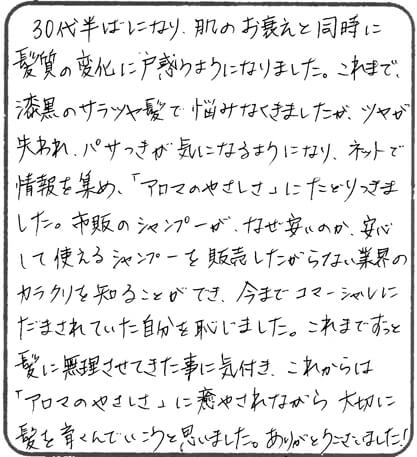 30代半ばになり、肌のお衰えと同時に
髪質の変化に戸惑うようになりました。これまで、
漆黒のサラツヤ髪で悩みなくきましたが、ツヤが
失われ、パサつきが気になるようになり、ネットで
情報を集め、「アロマのやさしさ」にたどりつきま
した。市販のシャンプーが、なぜ安いのか、安心
して使えるシャンプーを販売したがらない業界の
カラクリを知ることができ、今までコマーシャルに
だまされていた自分を恥じました。これまでずっと
髪に無理させてきた事に気付き、これからは
「アロマのやさしさ」に癒やされながら大切に
髪を育くんでいこうと思いました。ありがとうございました!